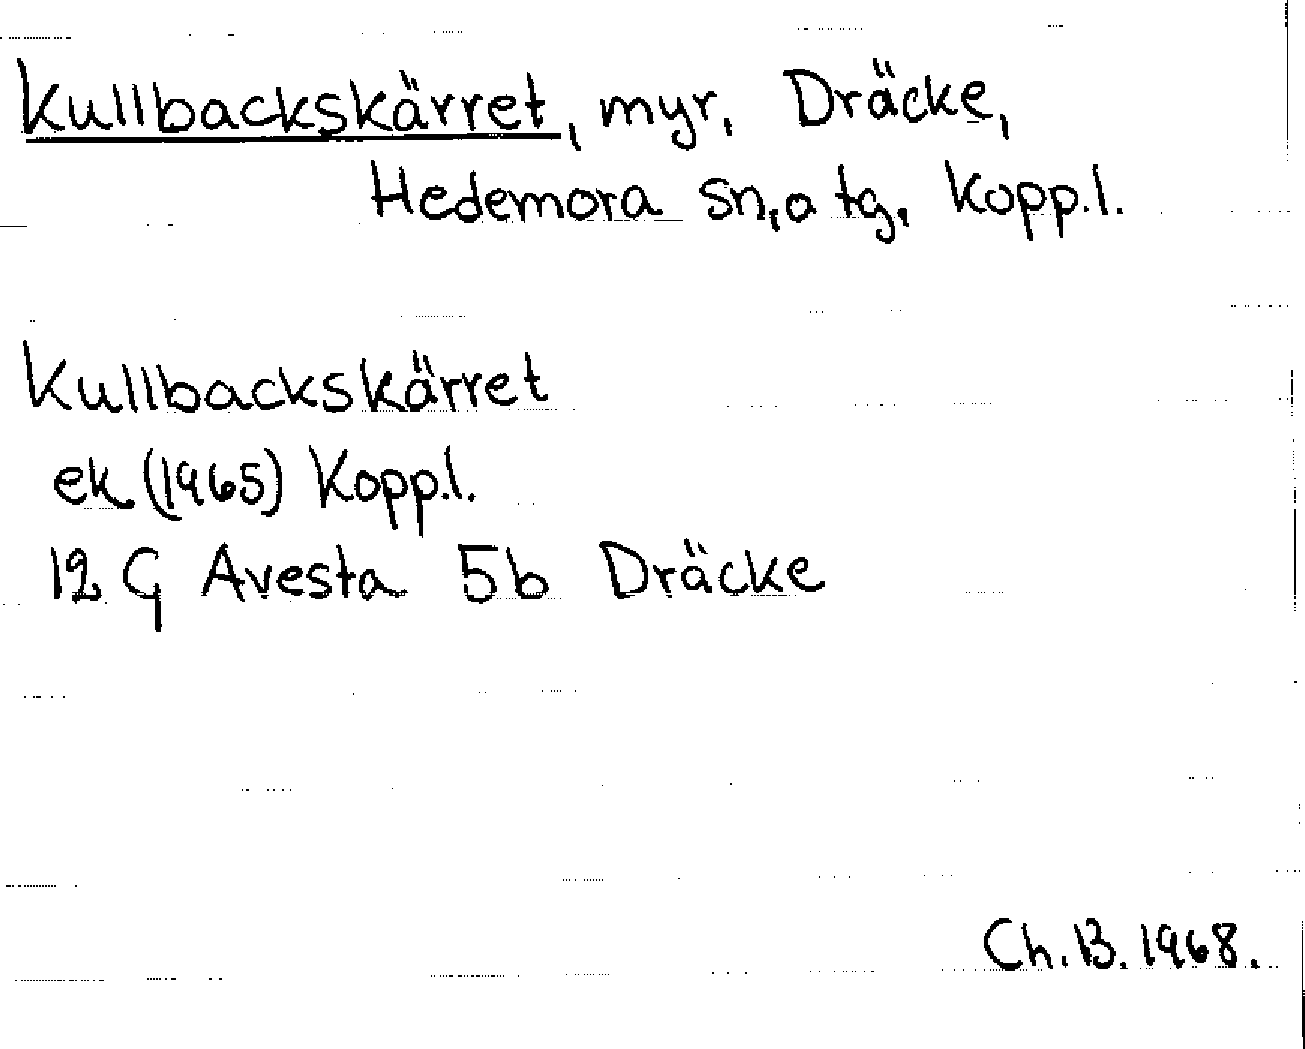 Kullbackskärret, myr, Dräcke,
Hedemora sn, o tg, Kopp.l.
Kullbackskärret
ek (1965) Kopp.l.
12 G Avesta 5b Dräcke
Ch.B. 1968.